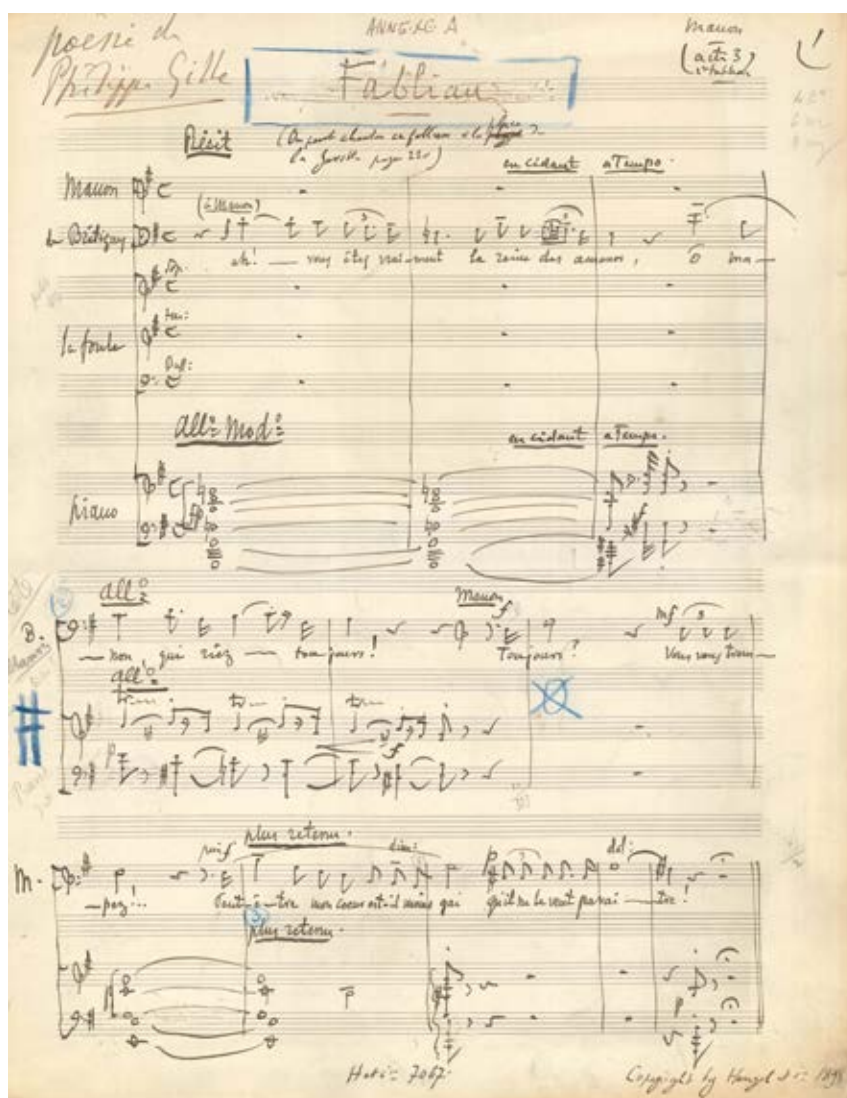 poésie de
Philippe Gille
ANNEXE A
Manon
(acte 3
Fabliau
Récit
(On peut chanter ce fabliau à la place de
la Gavotte page 221)
en cédant a Tempo.
Manon
(à Manon)
de Brétigny
ah! — vous êtes vrai-ment la reine des amours, ô ma-
la foule
All° Mod°
en cédant a Tempo.
piano
All°
Manon
f
B.
— non qui riez — toujours! Toujours? Vous vous trom-
mf 3
All°
tr tr tr
p f
plus retenu.
M.
-pez!... Peut-ê-tre mon coeur est-il moins gai qu'il ne le veut paraî-tre!
plus retenu.
p
7067
Copyright by Heugel